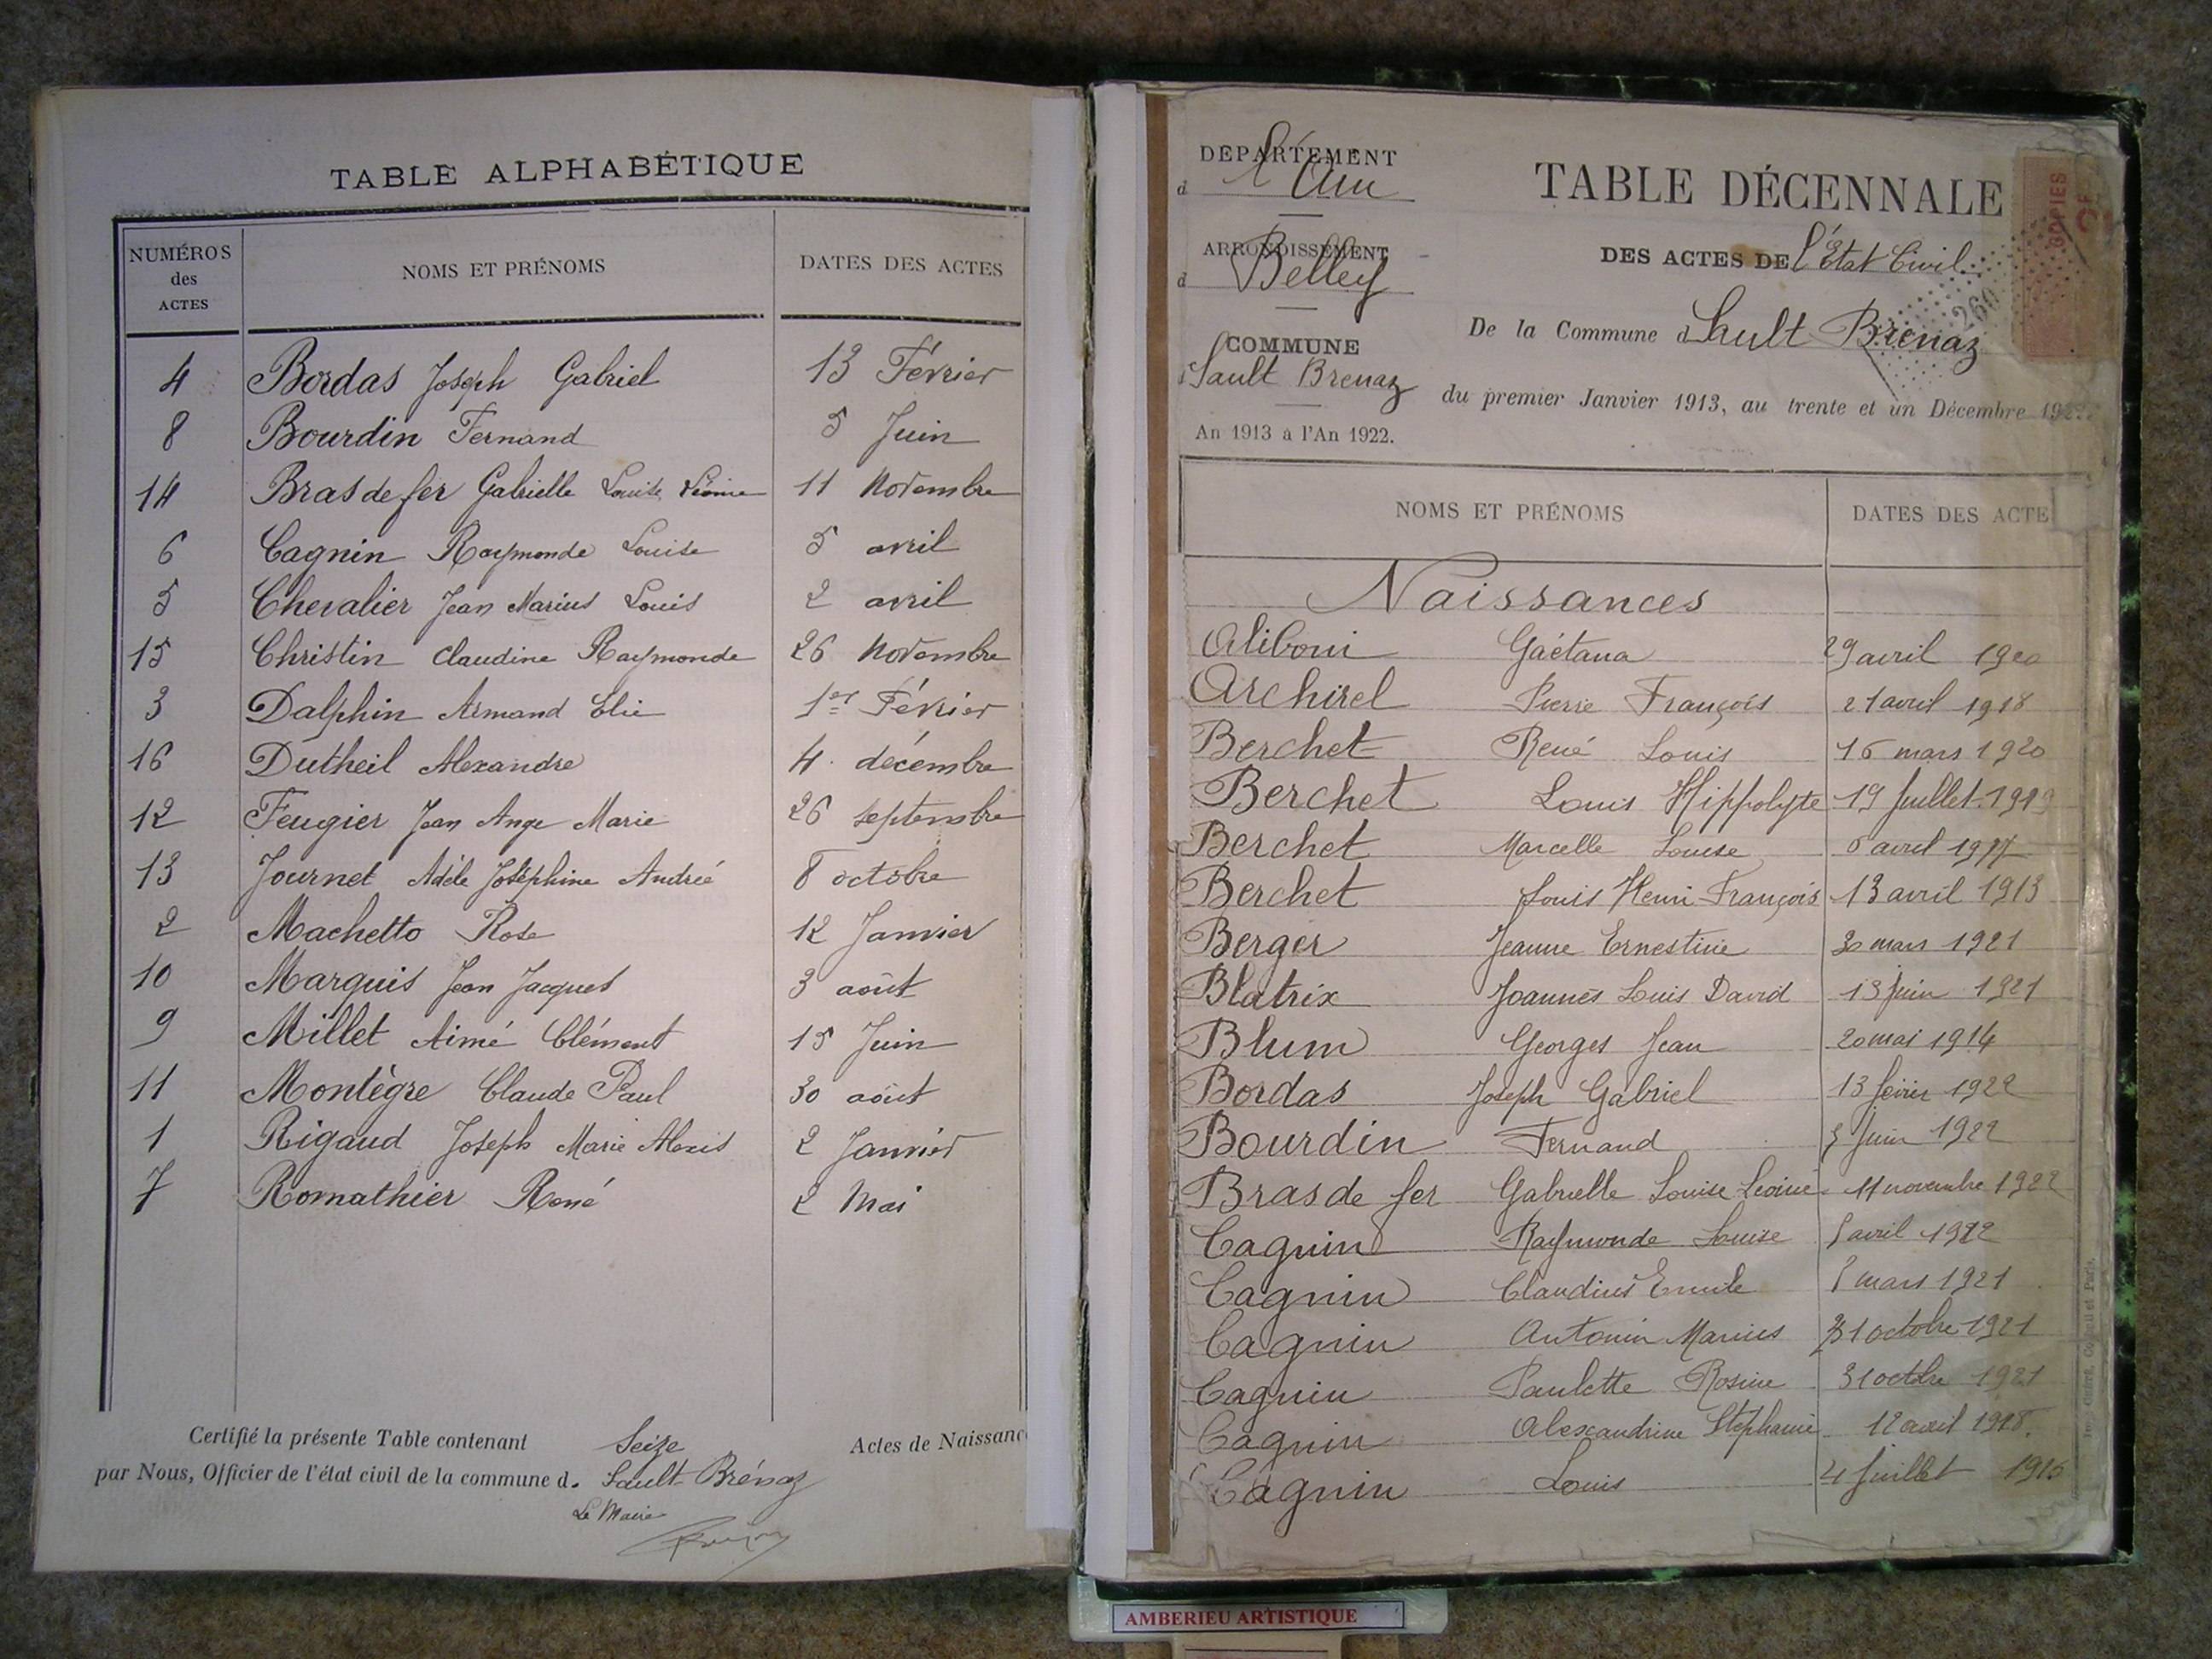 TABLE ALPHABÉTIQUE
NUMÉROS des ACTES NOMS ET PRÉNOMS DATES DES ACTES
4 Bordas Joseph Gabriel 13 Février
8 Bourdin Fernand 5 Juin
14 Bras de fer Gabrielle Louise Léonie 11 Novembre
6 Cagnin Raymonde Louise 5 avril
5 Chevalier Jean Marius Louis 2 avril
15 Christin Claudine Raymonde 26 Novembre
3 Dalphin Armand Elie 1er Février
16 Dutheil Alexandre 4 décembre
12 Feugier Jean Ange Marie 26 septembre
13 Journet Adèle Joséphine Andrée 8 octobre
2 Machetto Rose 12 Janvier
10 Marquis Jean Jacques 3 août
9 Millet Aimé Clément 15 Juin
11 Montègre Claude Paul 30 août
1 Rigaud Joseph Marie Alexis 2 Janvier
7 Romathier René 2 Mai
Certifié la présente Table contenant Seize Actes de Naissanc
par Nous, Officier de l'état civil de la commune d. Sault-Brénaz
Le Maire
DEPARTEMENT
d l'Ain
ARRONDISSEMENT
d Belley
COMMUNE
d Sault Brenaz
An 1913 à l'An 1922.
TABLE DÉCENNALE
DES ACTES DE l'État Civil
De la Commune d Sault Brenaz
du premier Janvier 1913, au trente et un Décembre 192
COPIES
260
NOMS ET PRÉNOMS DATES DES ACTE
Naissances
Aliboni Gaétana 29 avril 1920
Archirel Pierre François 21 avril 1918
Berchet René Louis 16 mars 1920
Berchet Louis Hippolyte 19 Juillet 1919
Berchet Marcelle Louise avril 1917
Berchet Louis Henri François 13 avril 1913
Berger Jeanne Ernestine 30 mars 1921
Blatrix Joannès Louis David 13 juin 1921
Blum Georges Jean 20 mai 1914
Bordas Joseph Gabriel 13 février 1922
Bourdin Fernand 5 Juin 1922
Bras de fer Gabrielle Louise Léonie 11 novembre 1922
Cagnin Raymonde Louise 5 avril 1922
Cagnin Claudius Emile mars 1921
Cagnin Antonin Marius 31 octobre 1921
Cagnin Paulette Rosine 31 octobre 1921
Cagnin Alexandrine Stéphanie 12 avril 1918
Cagnin Louis 4 Juillet 1916
AMBERIEU ARTISTIQUE